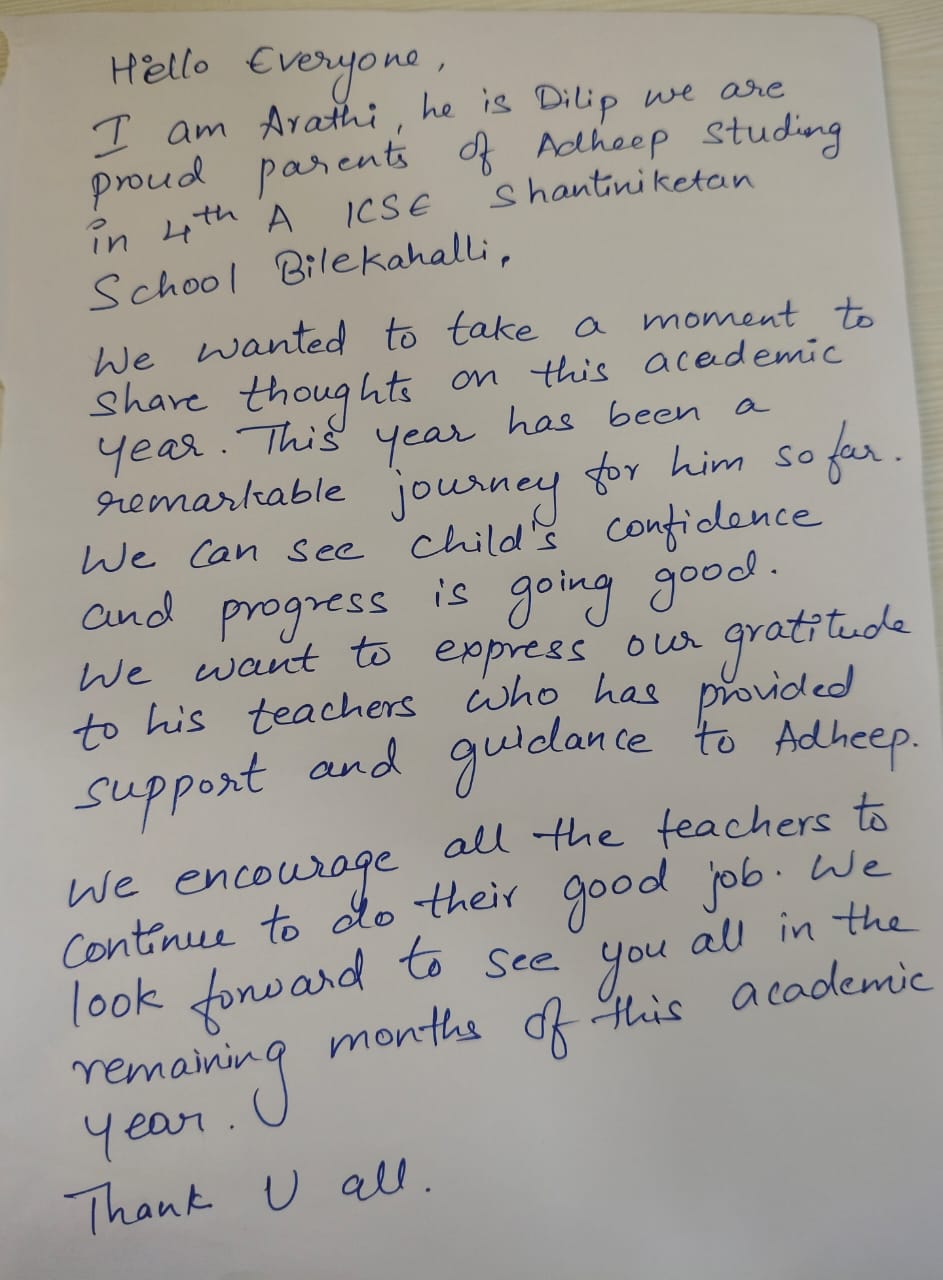 Hello Everyone,
I am Arathi, he is Dilip we are
proud parents of Adheep studing
in 4th A ICSE Shantiniketan
School Bilekahalli,
We wanted to take a moment to
share thoughts on this academic
year. This year has been a
remarkable journey for him so far.
We can see child's confidence
and progress is going good.
We want to express our gratitude
to his teachers who has provided
support and guidance to Adheep.
We encourage all the teachers to
continue to do their good job. We
look forward to see you all in the
remaining months of this academic
year.
Thank U all.